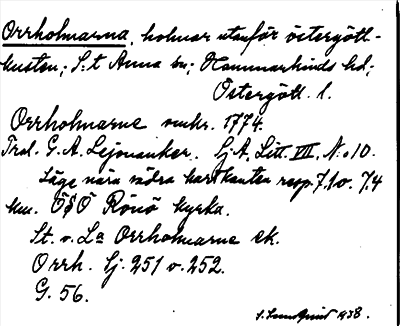 Orrholmarna, holmar utanför östergöt-
kusten; S:t Anna sn; Hammarkinds hd;
Östergötl. l.
Orrholmarne omkr. 1774.
Trol. G. A. Lejonanker. Sj.A. Litt. VII. N:o 10.
Läge nära södra kartkanten resp. 7.10. 7.4
km. ÖSÖ Rönö kyrka.
St. o. La Orrholmarne ek.
Orrh. Sj. 251 o. 252.
G. 56.
1938.